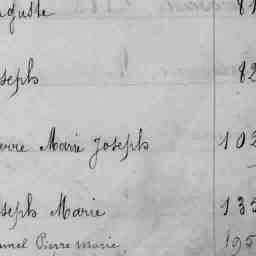 uguste 81
seph 82
erre Marie Joseph 102
seph Marie 135
unel Pierre marie 195